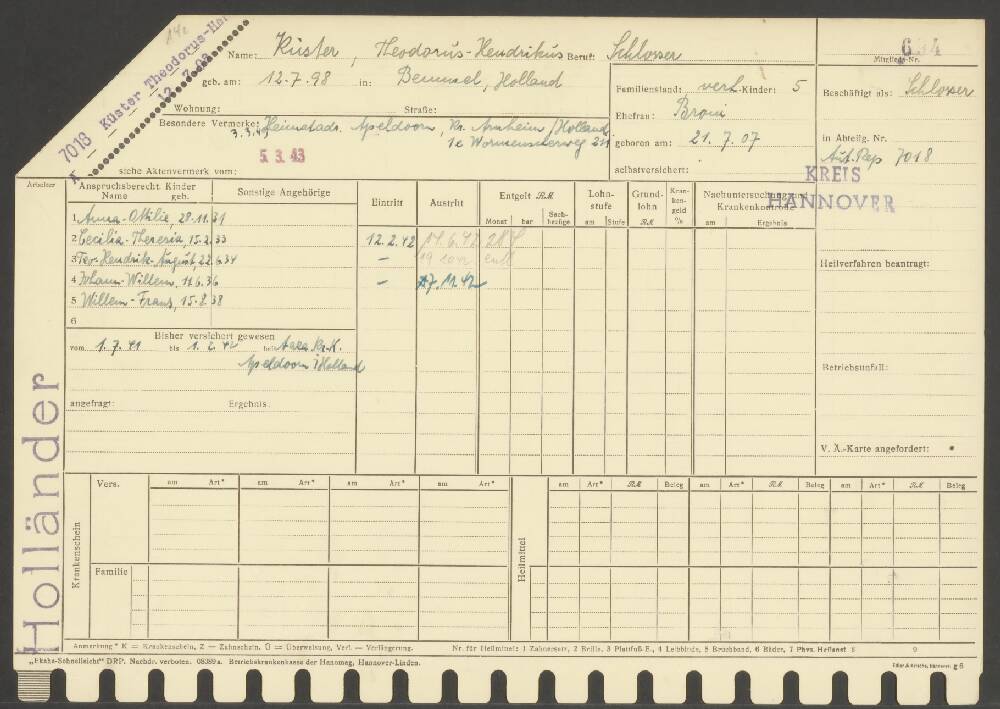 7018 Küster Theodorus-He
12.7.98
Name: Küster, Theodorus-Hendrikus Beruf: Schlosser
geb. am: 12.7.98 in: Bemmel, Holland
Mitglieds-Nr.
Wohnung: Straße:
Familienstand: verh. Kinder: 5
Beschäftigt als: Schlosser
Besondere Vermerke: Heimatadr. Apeldoorn, Kr. Arnheim/Holland
Ehefrau:
5. 3. 43
geboren am: 21.7.07
in Abteilg. Nr.
Aut. Rep 7018
siehe Aktenvermerk vom:
selbstversichert:
KREIS
HANNOVER
Arbeiter
Anspruchsberecht. Kinder
Name geb.
Sonstige Angehörige
Eintritt
Austritt
Entgelt RM
Monat bar Sachbezüge
Lohnstufe
am Stufe
Grundlohn
RM
Krankengeld %
Nachuntersuchung und Krankenkontrolle
am Ergebnis
1 Anna-Ottilie, 28.11.31
2 Cecilia-Theresia, 15.2.33 12.2.42 14.6.42
3 Teo-Hendrik-August, 22.6.34 –
Heilverfahren beantragt:
4 Johann-Willem, 11.6.36 – 27.11.42
5 Willem-Frans, 15.8.38
6
Bisher versichert gewesen
vom 1.7.41 bis 1.2.42 bei Kr.K.
Apeldoorn i/Holland
Betriebsunfall:
angefragt: Ergebnis:
V. Ä.-Karte angefordert:
Holländer
Krankenschein
Vers.
am Art* am Art* am Art* am Art*
Heilmittel
am Art* RM Beleg am Art* RM Beleg am Art* RM Beleg
Familie
Anmerkung * K = Krankenschein, Z = Zahnschein, Ü = Überweisung, Verl. = Verlängerung.
Nr. für Heilmittel: 1 Zahnersatz, 2 Brille, 3 Plattfuß-E., 4 Leibbinde, 5 Bruchband, 6 Bäder, 7 Phys. Heilanst 8 9
„Ekaha-Schnellsicht" DRP. Nachdr. verboten. 08389a. Betriebskrankenkasse der Hanomag, Hannover-Linden.
g 6